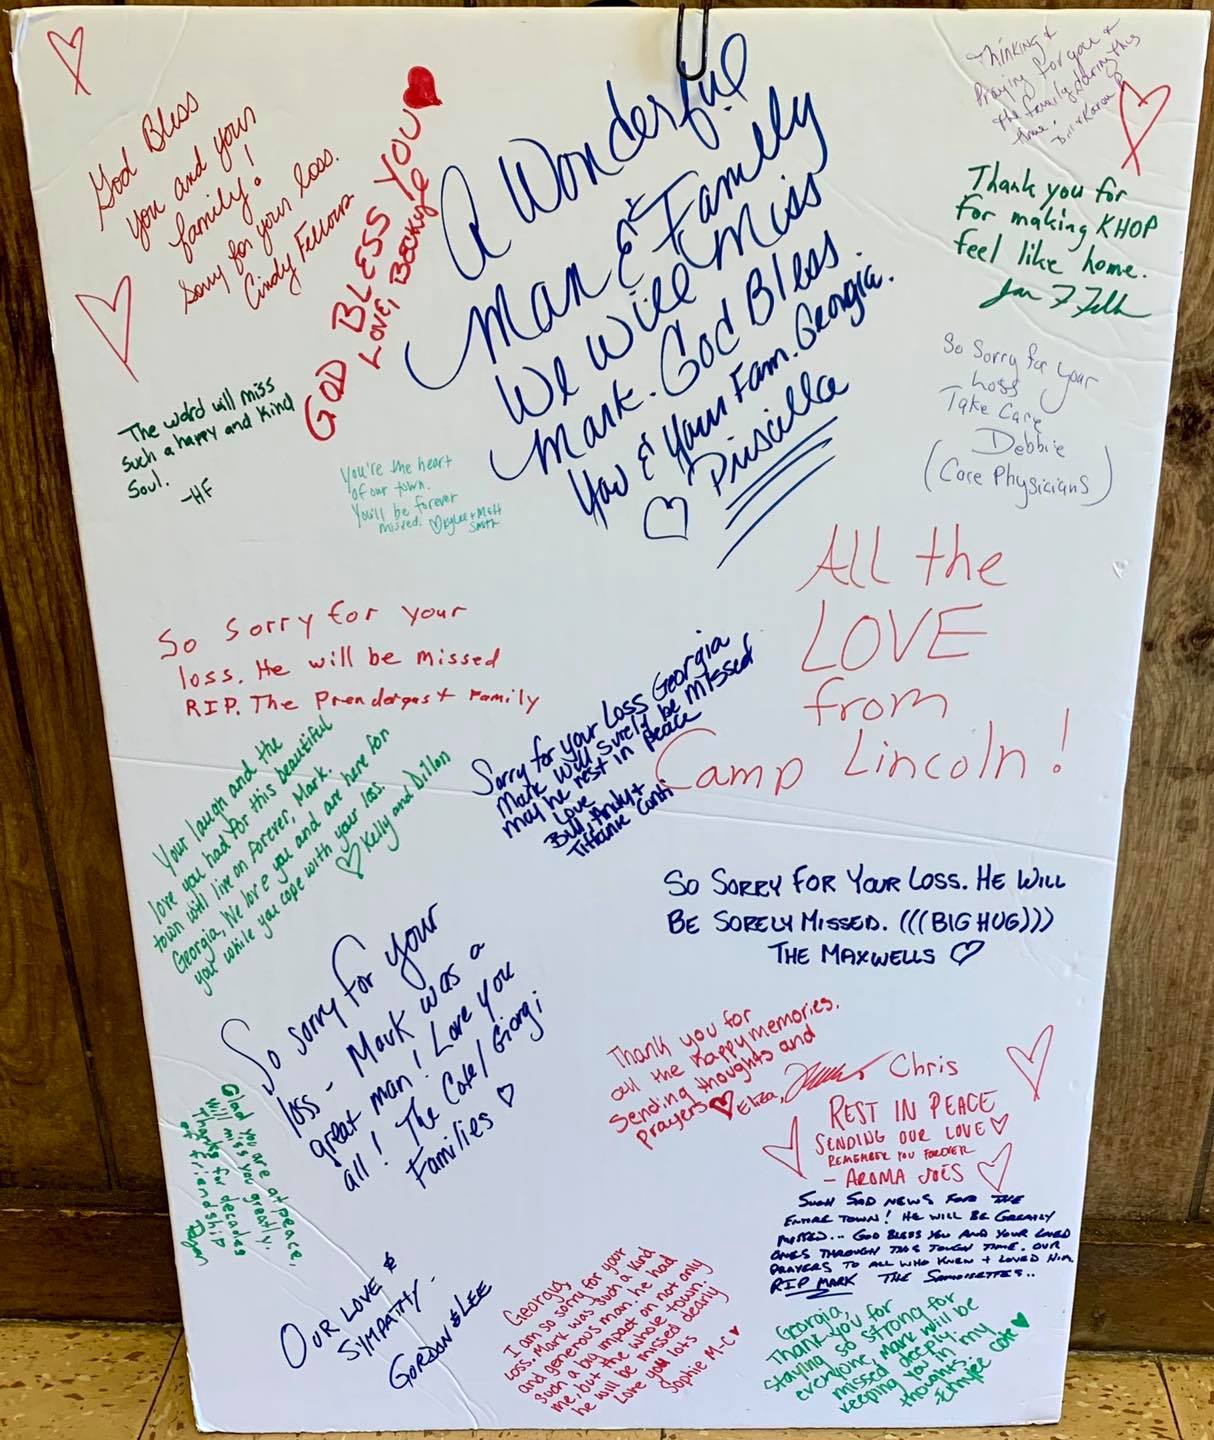 God Bless
you and your
family!
Sorry for your loss.
Cindy Fellows
GOD BLESS YOU
LOVE, BECKY
A Wonderful
Man & Family
We Will Miss
Mark. God Bless
You & Your Fam. Georgia.
Priscilla
Thinking &
Praying for you &
the family during this
time.
Bill & Karen P
Thank you for
for making KHOP
feel like home.
So Sorry for your
Loss
Take Care
Debbie
(Core Physicians)
The world will miss
such a happy and kind
soul.
-HF
You're the heart
of our town.
You'll be forever
missed. Kylee + Matt
Smith
All the
LOVE
from
Camp Lincoln!
So sorry for your
loss. He will be missed
RIP. The Prendergast Family
Sorry for your Loss Georgia
Mark will surely be missed
may he rest in peace
Love
Bill, Andy +
Tiffanie
Your laugh and the
love you had for this beautiful
town will live on forever, Mark.
Georgia, We love you and are here for
you while you cope with your loss.
Kelly and Dillon
SO SORRY FOR YOUR LOSS. HE WILL
BE SORELY MISSED. (((BIG HUG)))
THE MAXWELLS
So sorry for your
loss - Mark was a
great man! Love you
all! The Cote/Giorgi
Families
Thank you for
all the happy memories.
Sending thoughts and
prayers Eliza, Chris
REST IN PEACE
SENDING OUR LOVE
REMEMBER YOU FOREVER
- AROMA JOES
Glad you are at peace,
Will miss you greatly.
Thanks for decades
of friendship
SUCH SAD NEWS FOR THE
ENTIRE TOWN! HE WILL BE GREATLY
MISSED... GOD BLESS YOU AND YOUR LOVED
ONES THROUGH THIS TOUGH TIME. OUR
PRAYERS TO ALL WHO KNEW + LOVED HIM.
RIP MARK THE SAMOISETTES..
OUR LOVE &
SYMPATHY-
GORDON & LEE
Georgia,
I am so sorry for your
loss. Mark was such a kind
and generous man. he had
such a big impact on not only
me, but the whole town.
he will be missed dearly
Love you lots
Sophie M-C
Georgia,
Thank you for
staying so strong for
everyone. Mark will be
missed deeply.
keeping you in my
thoughts.